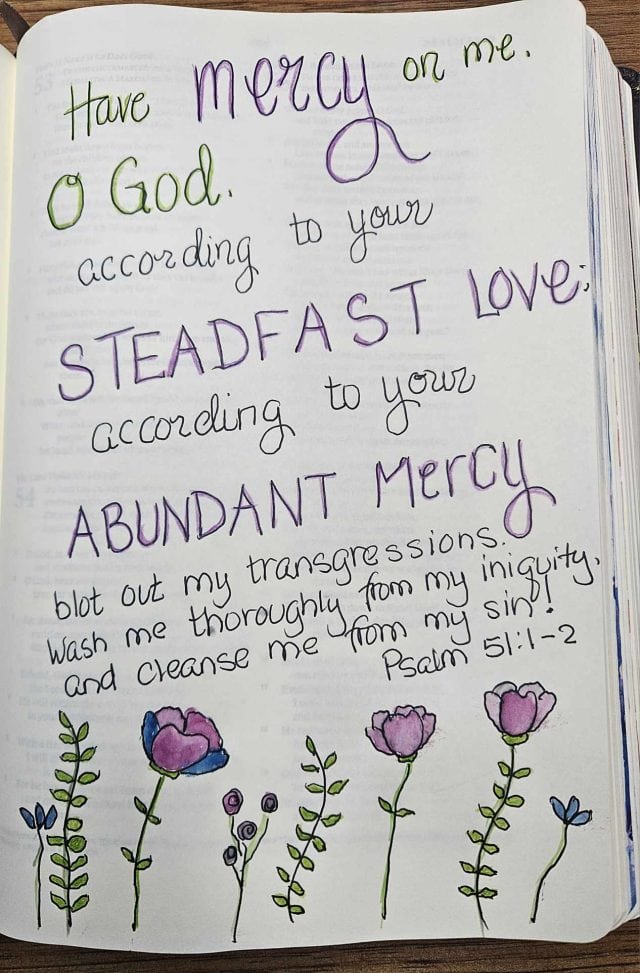 Have mercy on me.
O God.
according to your
STEADFAST LOVE;
according to your
ABUNDANT Mercy
blot out my transgressions.
Wash me thoroughly from my iniquity,
and cleanse me from my sin!
Psalm 51:1-2